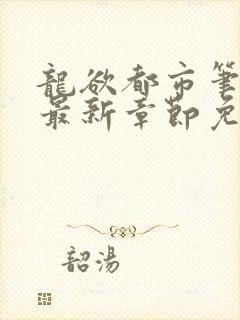 龍欲都市筆
最新章節免
韶湯